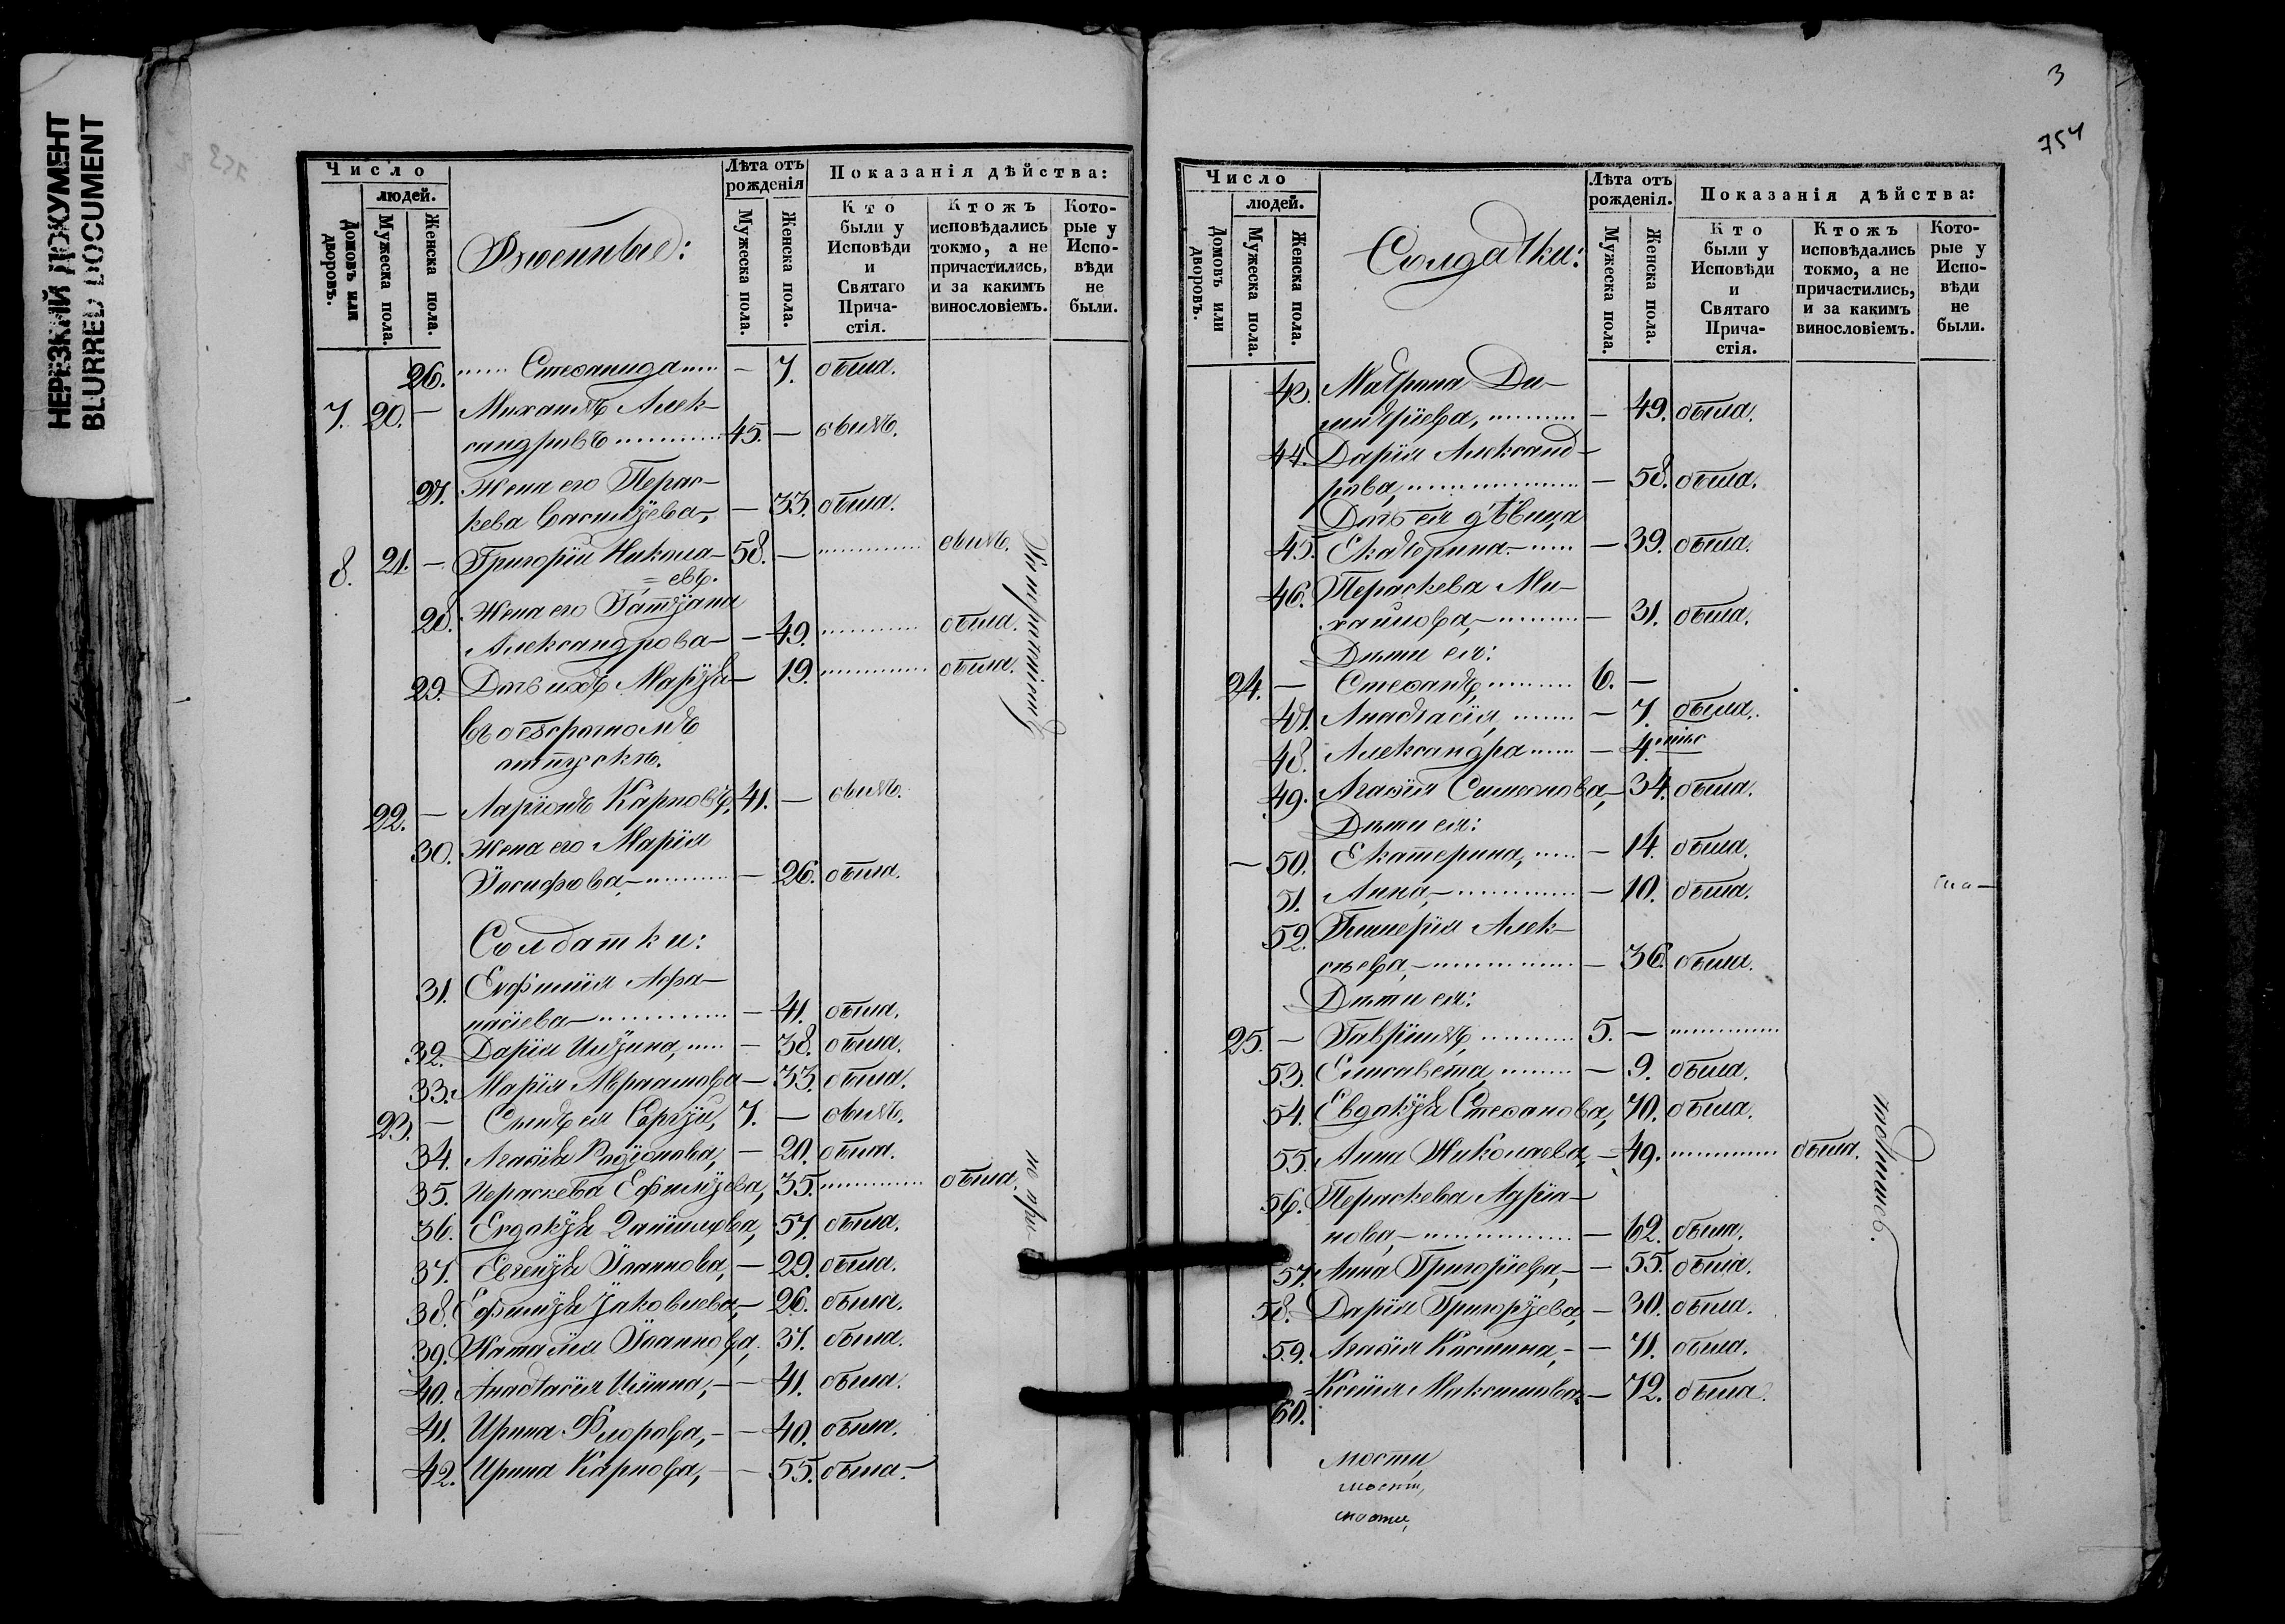 НЕРЕЗКИЙ ДОКУМЕНТ
BLURRED DOCUMENT
Число
людей.
Домовъ или дворовъ.
Мужеска пола.
Женска пола.
Военные:
Лѣта отъ рожденія
Мужеска пола.
Женска пола.
Показанія дѣйства:
Кто были у Исповѣди и Святаго Прича-стія.
Ктожъ исповѣдались токмо, а не причастились, и за какимъ винословіемъ.
Кото-рые у Испо-вѣди не были.
26. Стефанида — 7. была.
7. 20. — Михаилъ Алек-
сандровъ 45. — былъ.
27. Жена его Перас-
кева Васильева, — 33. была.
8. 21. — Григорій Никола- 58. — былъ.
= евъ.
28. Жена его Татіана
Александрова — 49. была.
29. Дочь ихъ Марія — 19. была.
Въ безсрочномъ
отпускѣ.
22. — Ларіонъ Карповъ, 41. — былъ.
30. Жена его Марія
Іосифова, — 26. была.
Солдатки:
31. Евфимія Афа-
насіева — 41. была.
32. Дарія Ильина, — 38. была.
33. Марія Авраамова — 33. была.
23. — Сынъ ея Сергій, 7. — былъ.
34. Агафія Родіонова, — 20. была.
35. Параскева Ефиміева, 35. была.
36. Евдокія Даніилова, 57. была.
37. Евгенія Іоаннова, — 29. была.
38. Ефимія Іаковлева, — 26. была.
39. Наталія Іоаннова, 37. была.
40. Анастасія Ильина, — 41. была.
41. Ирина Флорова, — 40. была.
42. Ирина Карпова, — 55. была.
по при-
3
754
Число
людей.
Домовъ или дворовъ.
Мужеска пола.
Женска пола.
Солдатки:
Лѣта отъ рожденія.
Мужеска пола.
Женска пола.
Показанія дѣйства:
Кто были у Исповѣди и Святаго Прича-стія.
Ктожъ исповѣдались токмо, а не причастились, и за какимъ винословіемъ.
Кото-рые у Испо-вѣди не были.
43. Матрона Ди-
митріева, — 49. была.
44. Дарія Александ-
рова, — 58. была.
Дочь ея дѣвица
45. Екатерина — 39. была.
46. Пераскева Ми-
хаилова, — 31. была.
Дѣти ея:
24. — Стефанъ, 6. —
47. Анастасія, — 7. была.
48. Александра — 4.
49. Агафія Симеонова, — 34. была.
Дѣти ея:
— 50. Екатерина, — 14. была.
51. Анна, — 10. была.
52. Гликерія Алек-
сѣева, — 36. была.
Дѣти ея:
25. — Гавріилъ, 5. —
53. Елисавета, — 9. была.
54. Евдокія Стефанова, 70. была.
55. Анна Николаева, — 49. была.
56. Пераскева Адріа-
нова, — 62. была.
57. Анна Григоріева, — 55. была.
58. Дарія Григоріева, — 30. была.
59. Агафія Космина, — 71. была.
60. Ксенія Максимова — 72. была.